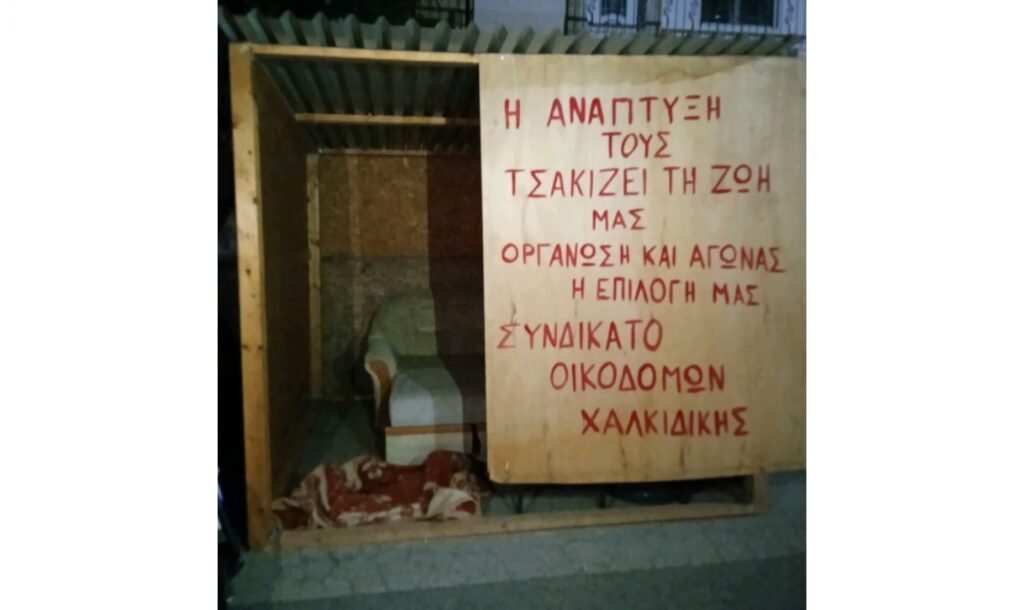 Η ΑΝΑΠΤΥΞΗ
ΤΟΥΣ
ΤΣΑΚΙΖΕΙ ΤΗ ΖΩΗ
ΜΑΣ
ΟΡΓΑΝΩΣΗ ΚΑΙ ΑΓΩΝΑΣ
Η ΕΠΙΛΟΓΗ ΜΑΣ
ΣΥΝΔΙΚΑΤΟ
ΟΙΚΟΔΟΜΩΝ
ΧΑΛΚΙΔΙΚΗΣ